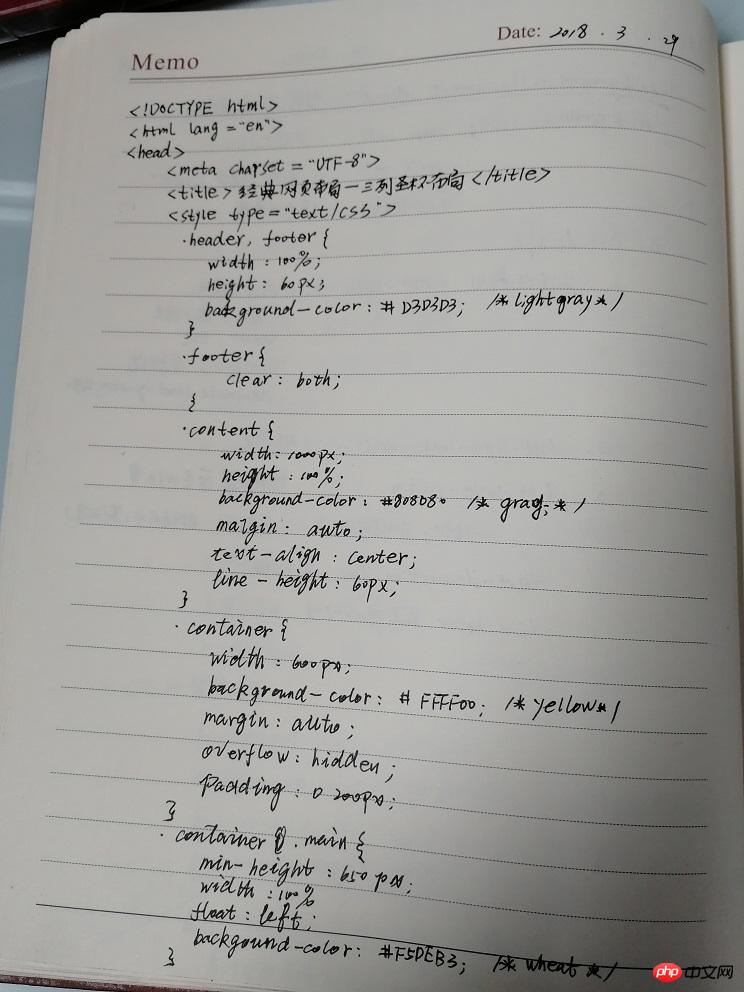 Memo
Date: 2018 . 3 . 29
<!DOCTYPE html>
<html lang="en">
<head>
<meta charset="UTF-8">
<title>经典网页布局—三列圣杯布局</title>
<style type="text/css">
.header, footer{
width:100%;
height: 60px;
background-color: #D3D3D3; /*lightgray*/
}
.footer{
clear: both;
{
.content{
width: 1000px;
height:100%;
background-color: #808080 /* gray;*/
margin: auto;
text-align: center;
line-height: 60px;
}
.container{
width: 600px;
background-color: #FFFF00; /*yellow*/
margin: auto;
overflow: hidden;
Padding: 0 200px;
}
.container .main{
min-height: 650px;
width:100%
float: left;
backgound-color: #F5DEB3; /*wheat*/
}
php中文网